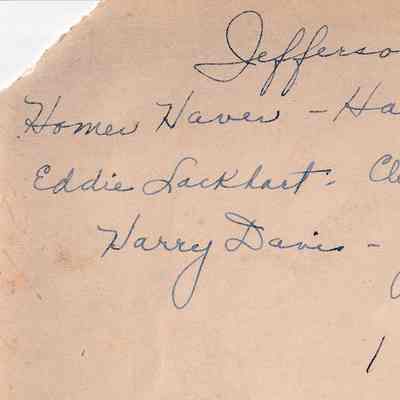 Jefferso
Homer Haver - Ha
Eddie Lockhart - Cl
Harry Davis -
1